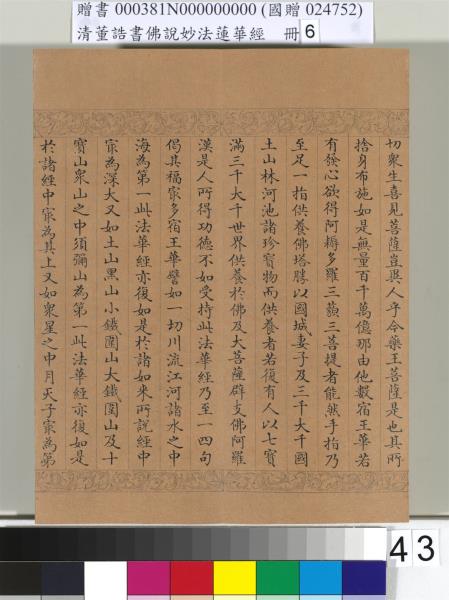 贈書 000381N000000000 (國贈 024752)
清董誥書佛說妙法蓮華經 冊 6
切衆生喜見菩薩豈異人乎今藥王菩薩是也其所
捨身布施如是無量百千萬億那由他數宿王華若
有發心欲得阿耨多羅三藐三菩提者能然手指乃
至足一指供養佛塔勝以國城妻子及三千大千國
土山林河池諸珍寶物而供養者若復有人以七寶
滿三千大千世界供養於佛及大菩薩辟支佛阿羅
漢是人所得功德不如受持此法華經乃至一四句
偈其福冣多宿王華譬如一切川流江河諸水之中
海為第一此法華經亦復如是於諸如來所說經中
冣為深大又如土山黑山小鐵圍山大鐵圍山及十
寶山衆山之中須彌山為第一此法華經亦復如是
於諸經中冣為其上又如衆星之中月天子冣為第
43